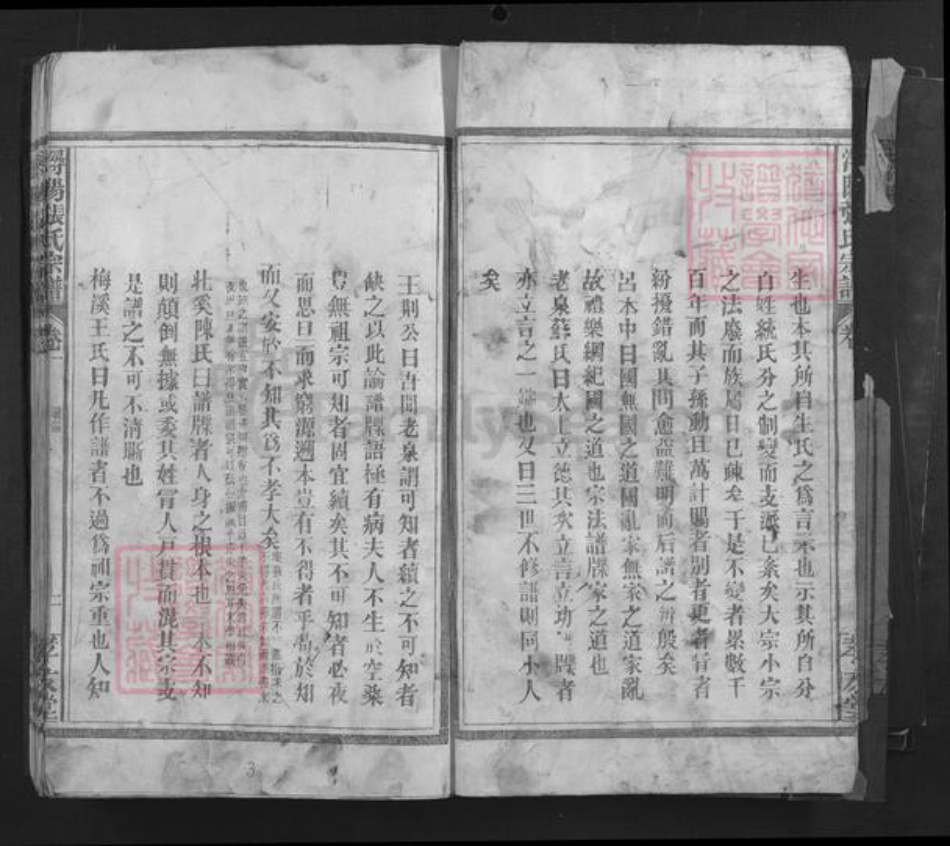 生也本其所自生氏之為言示也示其所自分
自姓統氏分之制變而支派已紊矣大宗小宗
之法廢而族屬日已疎矣于是不變者累數千
百年而其子孫動且萬計賜者別者更者冒者
紛擾錯亂其間愈益難明而后譜之辨殷矣
呂本中曰國無國之道國亂家無家之道家亂
故禮樂綱紀國之道也宗法譜牒家之道也
老泉蘇氏曰太上立德其次立言立功 牒者
亦立言之一端也又曰三世不修譜則同小人
矣
王荆公曰吾聞老泉謂可知者續之不可知者
缺之以此論譜牒語極有病夫人不生於空桑
無祖宗可知者固宜續矣其不可知者必夜
而思日而求窮源遡本豈有不得者乎苟於知
而又安於不知其為不孝大矣
壯奚陳氏曰譜牒者人身之根本也 本不知
則顛倒無據或委其姓冒人戶貫而混其宗支
是譜之不可不清晰也
梅溪王氏曰凡作譜者不過為祖宗重也人知
潯陽張氏宗譜
卷一